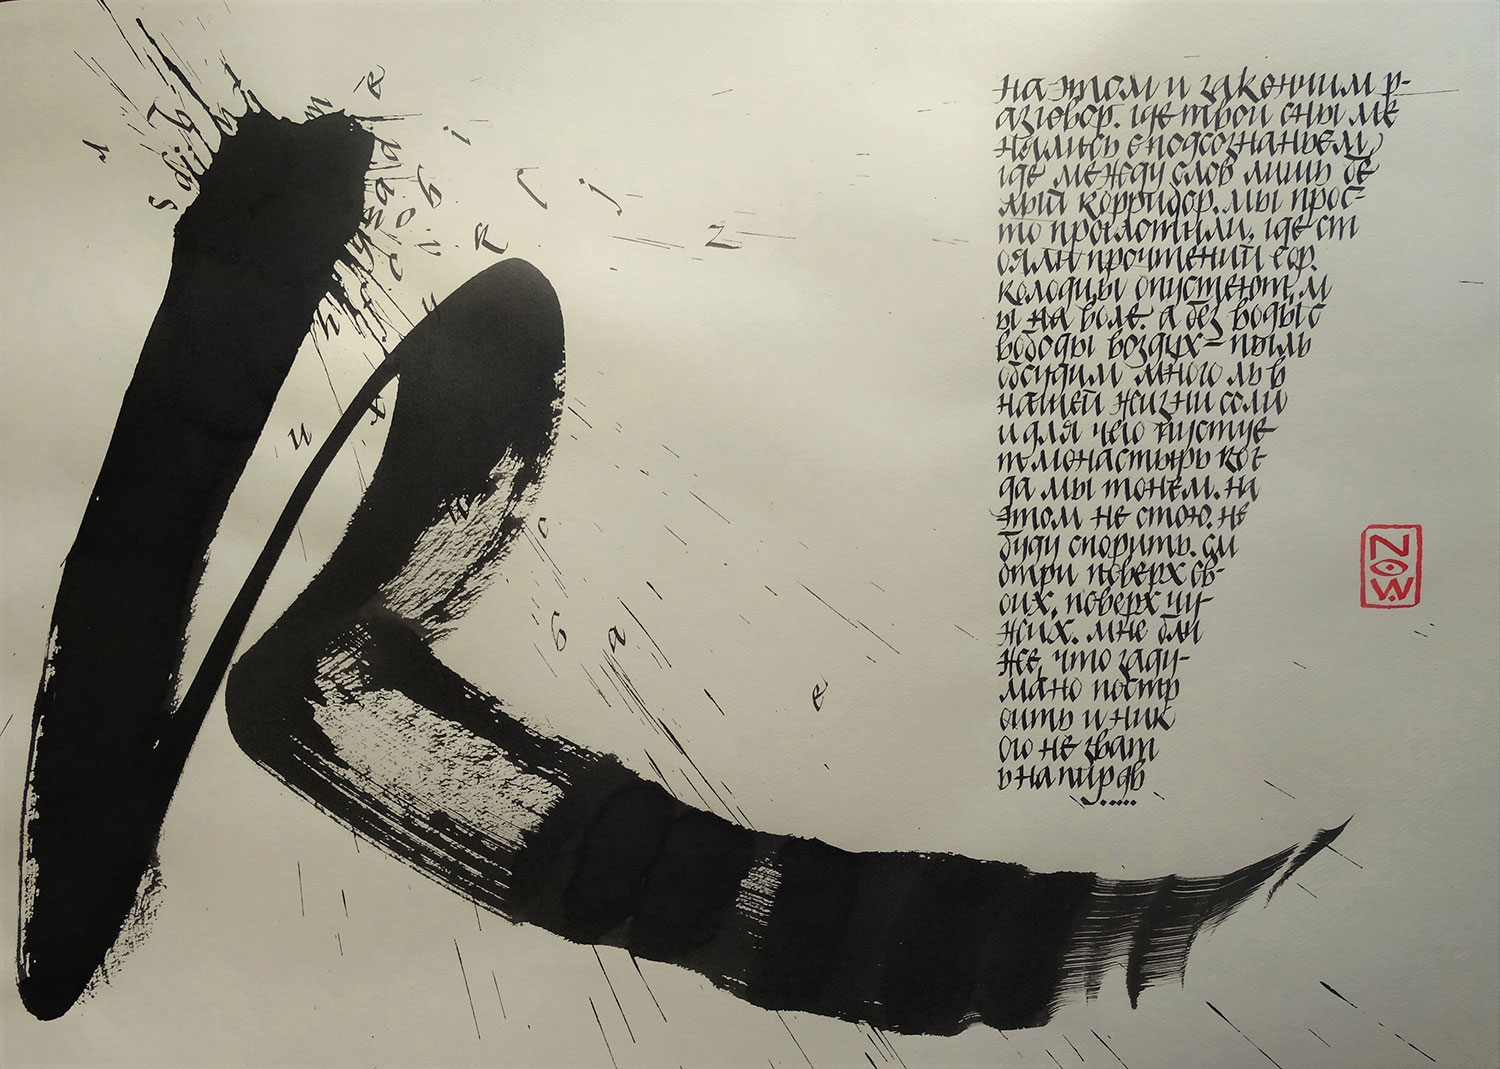 на этом и закончим р-
азговор. где твои сны ме
нялись с подсознаньем,
где между слов лишь бе
лый корридор. мы прос-
то проглотили, где ст
ояли прочтений сор.
колодцы опустеют, м
ы на воле. а без воды с
вободы воздух - пыль
обсудим много ль в
нашей жизни соли
и для чего пустуе
т монастырь ког
да мы тонем. на
этом не стою. не
буду спорить. см
отри поверх св-
оих, поверх чу
жих. мне бли
же, что заду-
мано постр
оить и ник
ого не зват
ь на пир дв
.....
NOW